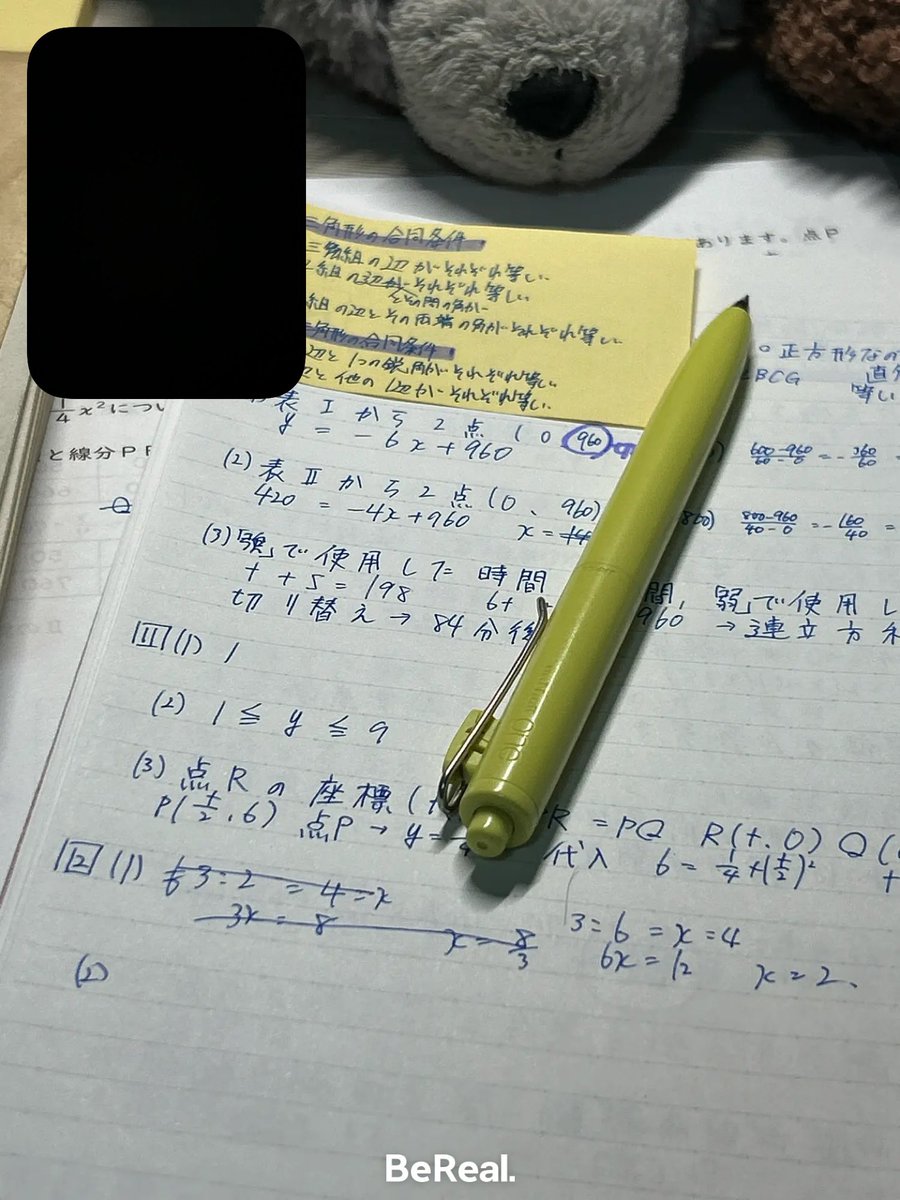 三角形の合同条件
三角組の辺がそれぞれ等しい
組の辺がそれぞれ等しい
とその間の角が
組の辺とその両端の角がそれぞれ等しい
三角形の合同条件
辺と1つの鋭角がそれぞれ等しい
と他の1辺がそれぞれ等しい
あります。点P
正方形なの
BCG
等しい
1/4 x²につい
と線分P
表Iから2点(0 960)
y = -6x+960
600-960/60-0 = -360/60
(2) 表IIから2点(0、960)
420 = -4x+960 x =
800-960/40-0 = -160/40 =
(3)「強」で使用した時間 間,「弱」で使用し
t + s = 198 6t 960 →連立方
切り替え → 84分後
11 (1) 1
(2) 1 ≦ y ≦ 9
(3) 点Rの座標(t R = PQ R(t.0) Q(
P(t/2, 6) 点P → y = 代入 6 = 1/4 × (t/2)²
12 (1) 3:2 = 4=x
3x = 8 x = 8/3
3=6 = x=4
6x = 12 x = 2.
(2)
one
BeReal.